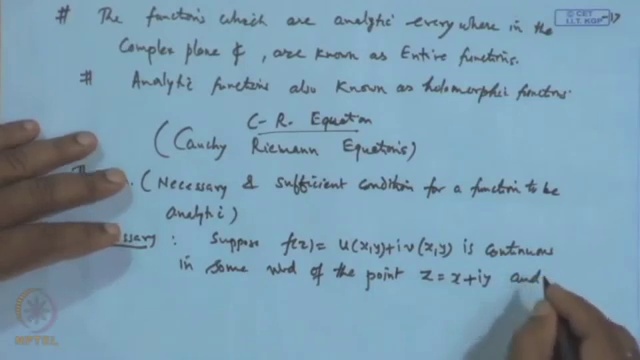 © CET
I.I.T. KGP
# The functions which are analytic everywhere in the
Complex plane ₵, are known as Entire functions.
# Analytic functions also known as holomorphic functions.
C-R. Equation
(Cauchy Riemann Equations)
(Necessary & sufficient condition for a function to be
analytic)
: Suppose f(z) = u(x,y)+iv(x,y) is continuous
in some nbd of the point z = x+iy and
NPTEL